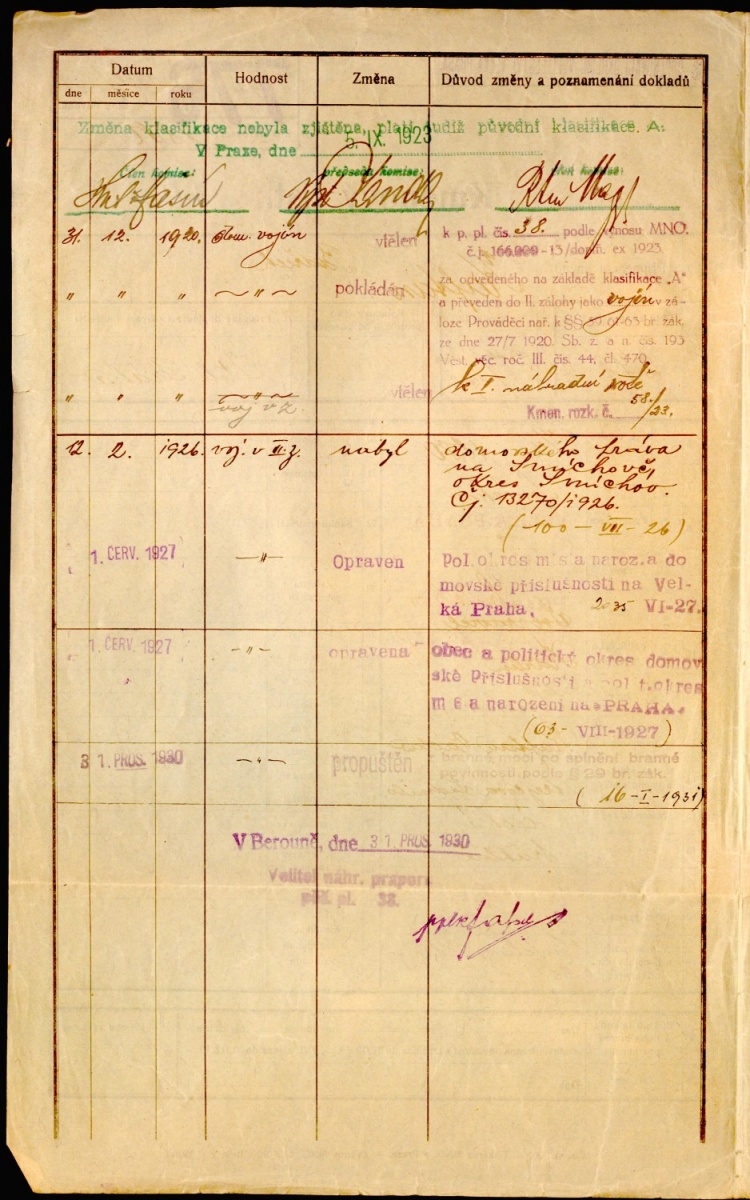 Datum Hodnost Změna Důvod změny a poznamenání dokladů
dne měsíce roku
Změna klasifikace nebyla zjištěna, platí tudíž původní klasifikace. A.
V Praze, dne 5. IX. 1923
člen komise: předseda komise: člen komise:
31. 12. 1920. vojín vtělen k p. pl. čís. 38. podle výnosu MNO.
č. j. 166.000-13/doplň. ex 1923.
" " " " pokládán za odvedeného na základě klasifikace „A"
a převeden do II. zálohy jako vojín v zá-
loze Prováděcí nař. k §§ 59, 61-63 br. zák.
ze dne 27/7 1920. Sb. z. a n. čís. 193
Věst. věc. roč. III. čís. 44, čl. 470.
" " " " vtělen k I. náhradní rotě
voj v z Kmen. rozk. č. 58/23.
12. 2. 1926. voj. v II. z. nabyl domovského práva
na Smíchově,
okres Smíchov.
Čj. 13270/1926.
(100 - VII - 26)
1. ČERV. 1927 " Opraven Pol. okres místa naroz. a do
movské příslušnosti na Vel-
ká Praha. 2035 VI-27.
1. ČERV. 1927 " opravena obec a politický okres domov
ské Příslušnosti a pol t. okres
místa narození na "PRAHA.
(63- VIII-1927)
31. PROS. 1930 " propuštěn z branné moci po splnění branné
povinnosti podle § 29 br. zák.
(16-I-1931)
V Berouně, dne 31. PROS. 1930
Velitel náhr. praporu
pěš. pl. 38.